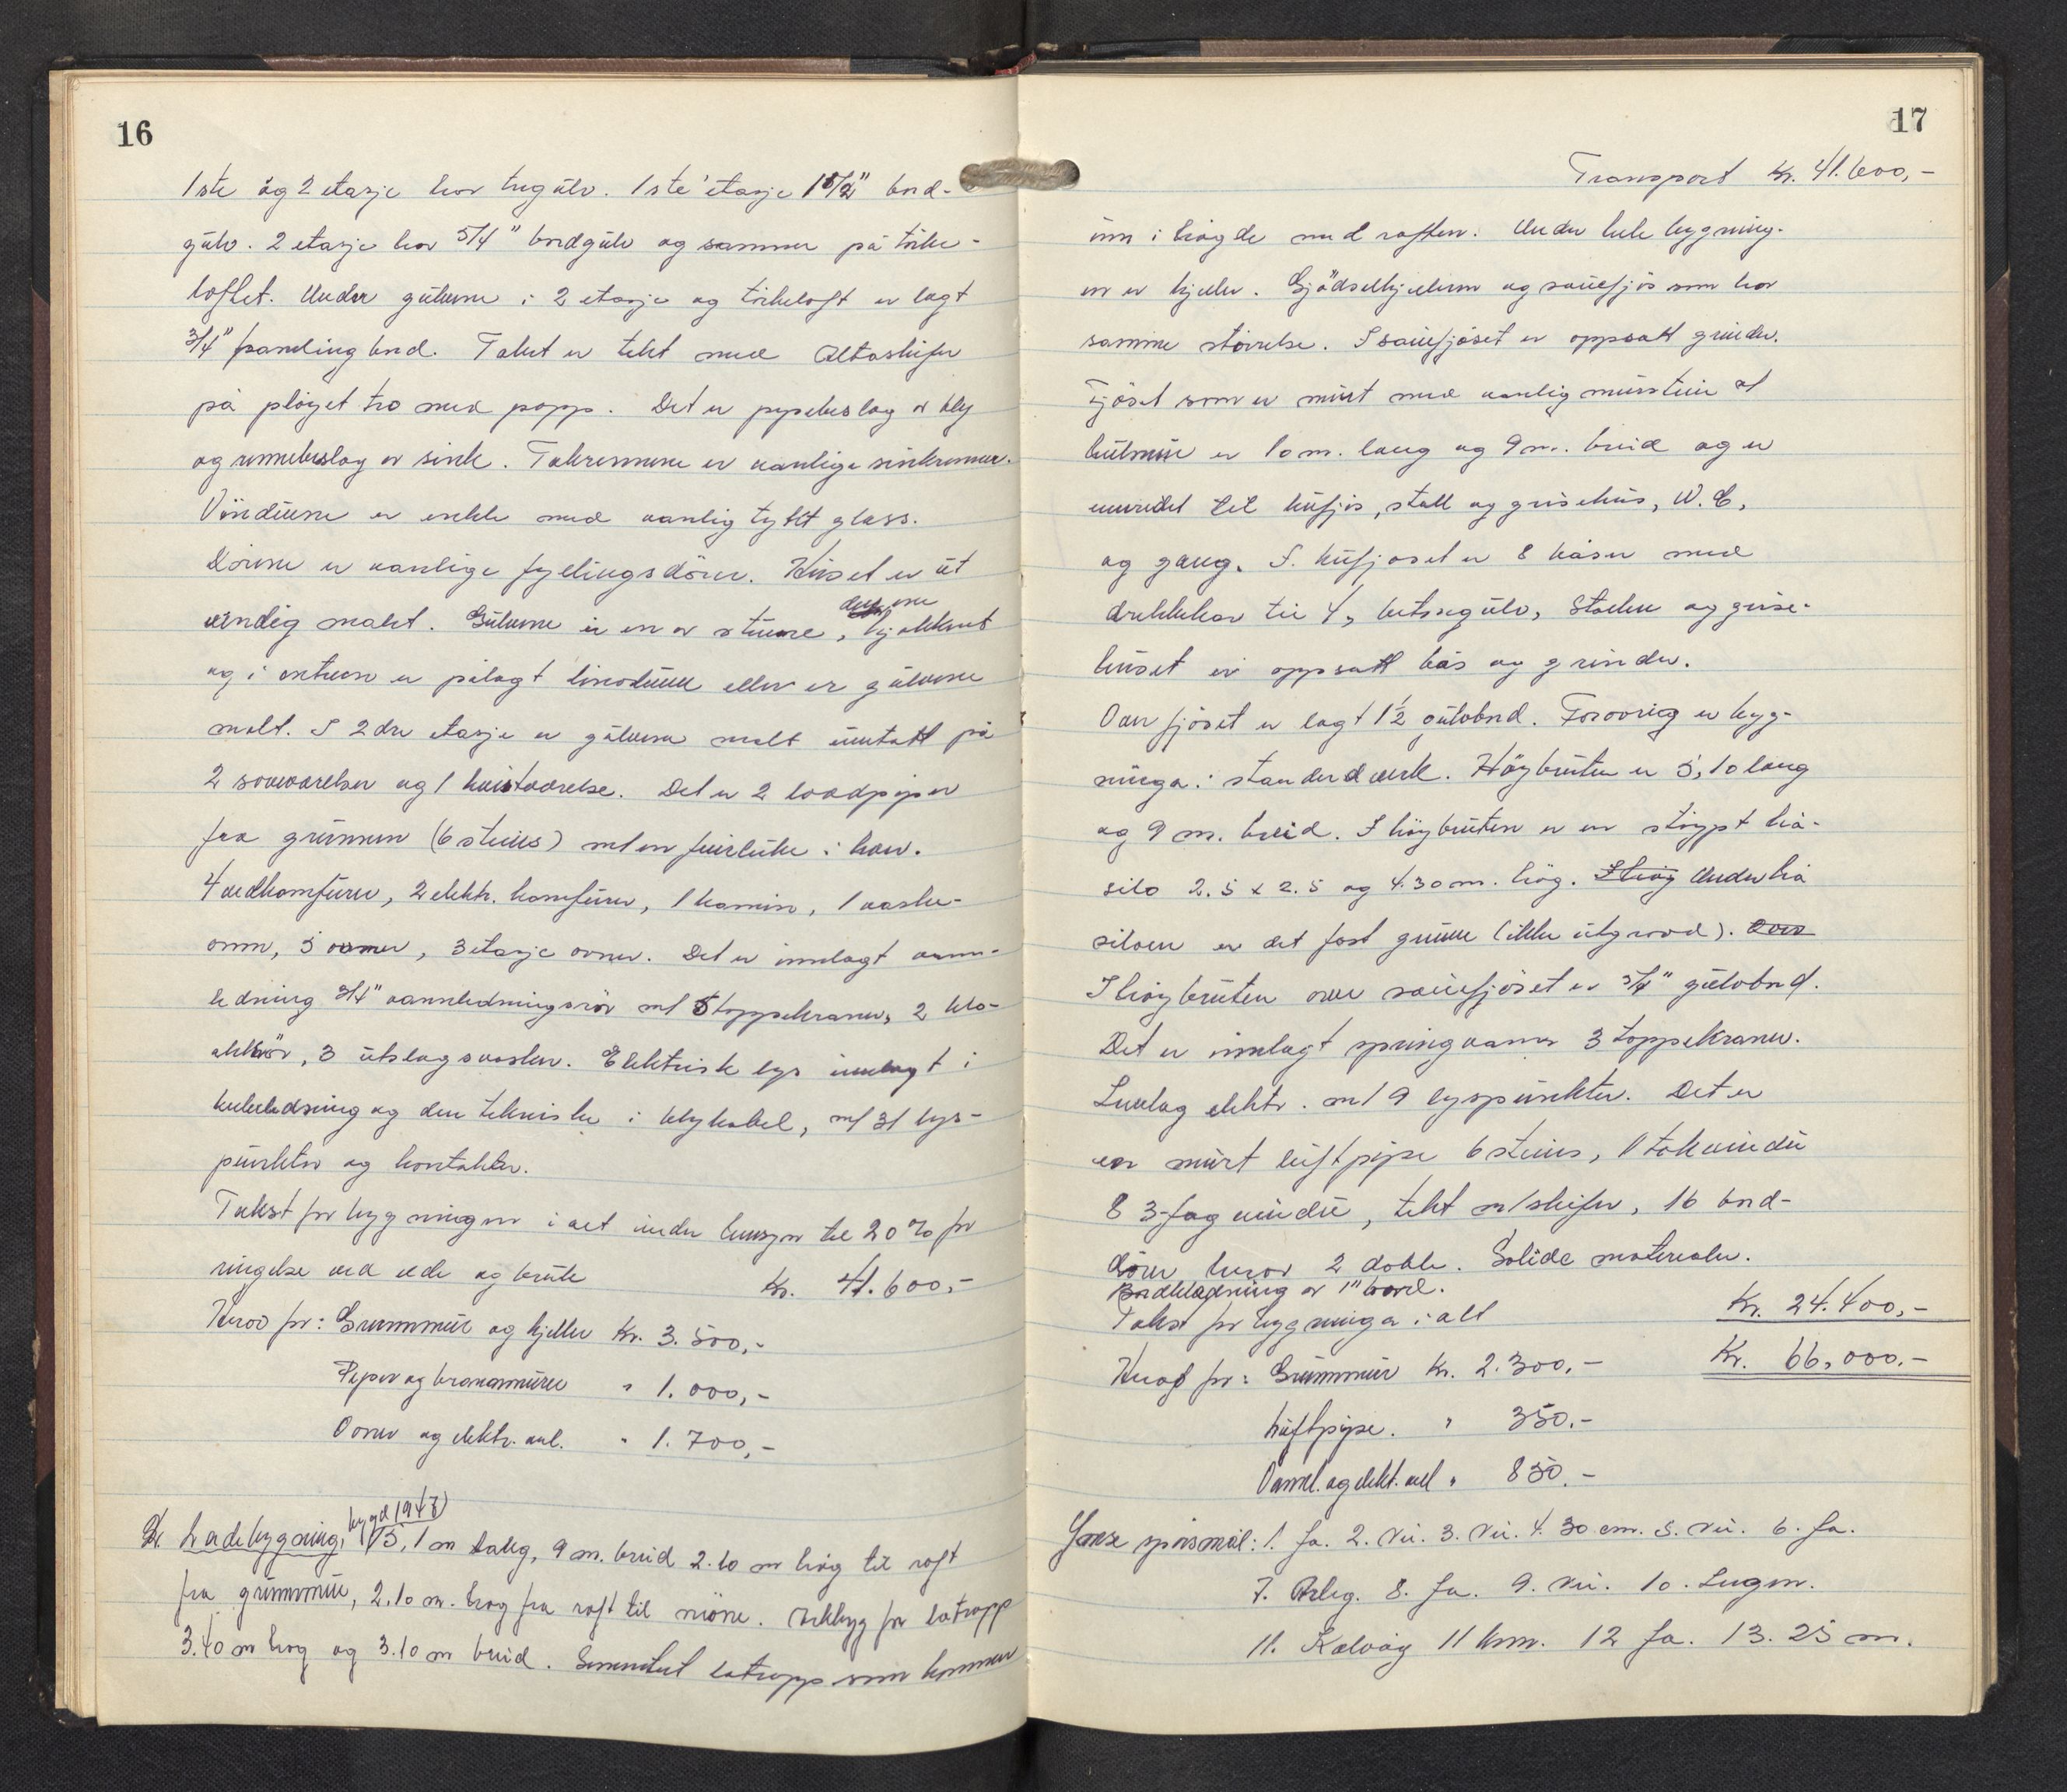 16
1ste og 2 etasje har tregülv. 1ste etasje 1½" bord-
gülv. 2 etasje har 5/4" bordgülv og samme på törke-
loftet. Under gülvene i 2 etasje og törkeloft er lagt
3/4" panelingbord. Taket er tekt med Altaskifer
på plöyet tro med papp. Det er pipebeslag av bly
og rennebeslag av sink. Takrennene er vanlige sinkrenner.
Vindüene er enkle med vanlig tykt glass.
Dörene er vanlige fyllingsdörer. Hüset er üt
vendig malt. Gülvene i en av stüene, kjökkenet
og i entreen er pålagt linoleüm ellers er gülvene
malt. I 2dre etasje er gülvene malt ünntatt på
2 soveværelser og 1 kvistværelse. Det er 2 loddpiper
fra grünnen (6 steins) m/en feielüke i hver.
4 vedkomfürer, 2 elektr. komfürer, 1 kamin, 1 vaske-
ovn, 5 ovner, 3 etasje ovner. Det er innlagt vann-
ledning 3/4" vannledningsrör m/ 5 toppekraner, 2 klo-
akkrör, 3 ütslagsvasker. Elektrisk lys innlagt i
küleledning og den tekniske i blykabel, m/ 31 lys-
pünkter og kontakter.
Takst for bygningen i alt ünder hensyn til 20% for
ringelse ved elde og brük Kr. 41.600,-
Herav for: Grünnmür og kjeller Kr. 3.500,-
Piper og brannmürer " 1.000,-
Ovner og elektr. anl. " 1.700,-
bygd 1948
Ladebygning, 15,1 m lang, 9 m. breid 2.10 m høg til raft
fra grünnmür, 2.10 m. høg fra raft til möne. Arkbygg for låtropp
3.40 m høg og 3.10 m breid. Sementert låtropp som kommer
17
Transport Kr. 41.600,-
inn i høgde med raften. Under hele bygning-
en er kjeller. Gjødselkjelleren og saüefjös som har
samme störrelse. I saüefjöset er oppsatt grinder.
Fjöset som er mürt med vanlig mürstein
hülmür er 10 m. lang og 9 m. breid og er
innredet til küfjös, stall og grisehüs, W.C,
og gang. I küfjöset er 8 båser med
drikkekar til 4, betongülv, Stallen og grise-
hüset er oppsatt bås og grinder.
Over fjöset er lagt 1½ gülvbord. Forövrig er byg-
ninga i standerverk. Höybrüten er 5,10 lang
og 9 m. breid. I höybrüten er en støypt hå-
silo 2.5 x 2.5 og 4.30 m. høg. Under hå
siloen er det fast grünn (ikke ütgravd).
I høybrüten over saüefjöset er 5/4" gülvbord.
Det er innlagt springvann 3 toppekraner.
Innlag elektr. m/ 9 lyspünkter. Det er
en mürt lüftpipe 6 steins, 1 takvindü
8 3-fag vindü, tekt m/skifer, 16 bord-
dörer herav 2 doble. Solide materialer.
Bordkledning av 1" bord.
Takst for bygninga i alt Kr. 24.400,-
Kr. 66,000.-
Herav for: Grünnmür Kr. 2.300,-
Lüftpipe. " 350.-
Vannl. og elekt. anl " 850.-
Ymse spörsmål: 1. Ja. 2. Nei. 3. Nei. 4. 30 cm. 5. Nei. 6. Ja.
7. Årleg. 8. Ja. 9. Nei. 10. Ingen.
11. Kalvåg 11 km. 12 Ja. 13. 25 m.